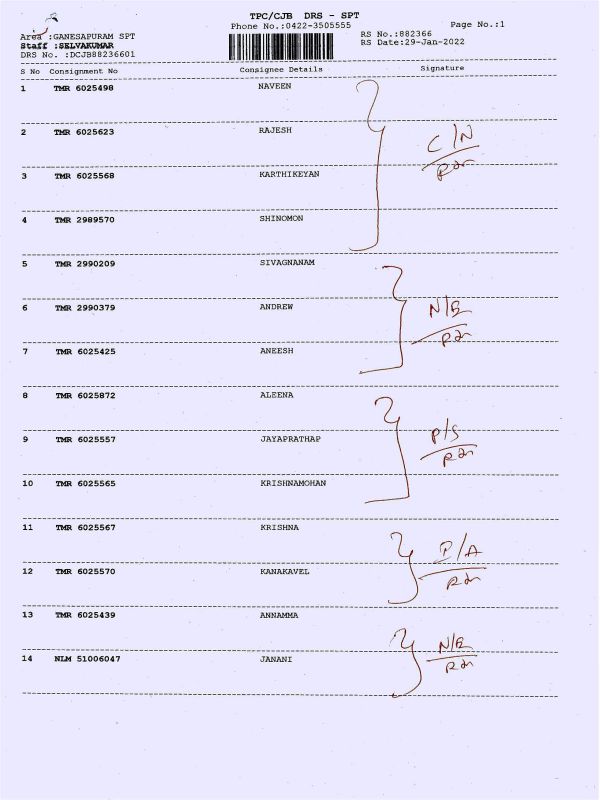 TPC/CJB DRS - SPT
Phone No.:0422-3505555 Page No.:1
Area :GANESAPURAM SPT RS No.:882366
Staff :SELVAKUMAR RS Date:29-Jan-2022
DRS No. :DCJB88236601
S No Consignment No Consignee Details Signature
1 TMR 6025498 NAVEEN
2 TMR 6025623 RAJESH
C/N
3 TMR 6025568 KARTHIKEYAN
4 TMR 2989570 SHINOMON
5 TMR 2990209 SIVAGNANAM
6 TMR 2990379 ANDREW N/R
7 TMR 6025425 ANEESH
8 TMR 6025872 ALEENA
9 TMR 6025557 JAYAPRATHAP P/S
10 TMR 6025565 KRISHNAMOHAN
11 TMR 6025567 KRISHNA
12 TMR 6025570 KANAKAVEL
13 TMR 6025439 ANNAMMA
14 NLM 51006047 JANANI N/R